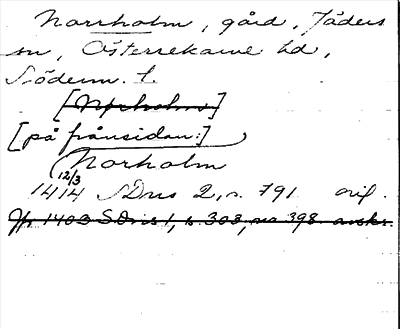 Norrholm, gård, Jäders
sn, Österrekarne hd,
Söderm. l.
[Norholm]
[på frånsidan:]
Norholm
12/3
1414 SDns 2, s. 791 orig.
Jfr 1403 SDns 1, s. 303, no 398 avskr.